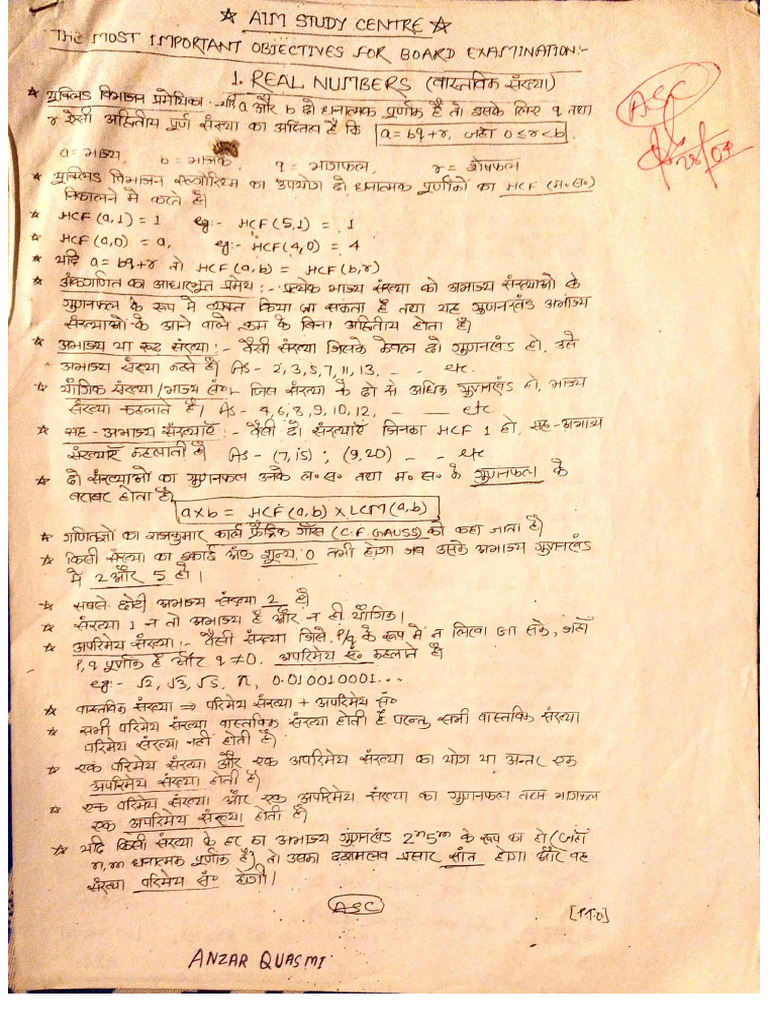 ☆ AIM STUDY CENTRE ☆
THE MOST IMPORTANT OBJECTIVES FOR BOARD EXAMINATION:-
1. REAL NUMBERS (वास्तविक संख्या)
☆ यूक्लिड विभाजन प्रमेयिका :- यदि a और b दो धनात्मक पूर्णांक है तो उसके लिए q तथा
r ऐसी अद्वितीय पूर्ण संख्या का अस्तित्व है कि a = bq+r, जहाँ 0≤r<b
ASC
a = भाज्य, b = भाजक, q = भागफल, r = शेषफल
☆ यूक्लिड विभाजन एल्गोरिथ्म का उपयोग दो धनात्मक पूर्णांकों का HCF (म०स०)
निकालने मे करते है।
☆ HCF(a,1) = 1 eg:- HCF(5,1) = 1
☆ HCF(a,0) = a, eg:- HCF(4,0) = 4
☆ यदि a = bq+r तो HCF(a,b) = HCF(b,r)
☆ अंकगणित का आधारभूत प्रमेय :- प्रत्येक भाज्य संख्या को अभाज्य संख्याओं के
गुणनफल के रूप मे व्यक्त किया जा सकता है तथा यह गुणनखंड अभाज्य
संख्याओं के आने वाले क्रम के बिना अद्वितीय होता है।
☆ अभाज्य या रूढ़ संख्या :- वैसी संख्या जिसके केवल दो गुणनखंड हो, उसे
अभाज्य संख्या कहते है। As - 2,3,5,7,11,13, - - etc.
☆ यौगिक संख्या/भाज्य सं०:- जिस संख्या के दो से अधिक गुणनखंड हो, भाज्य
संख्या कहलाते है। As - 4,6,8,9,10,12, - - - etc
☆ सह-अभाज्य संख्याएँ :- वैसी दो संख्याएँ जिनका HCF 1 हो, सह-अभाज्य
संख्याएँ कहलाती है। As - (7,15) ; (9,20) - - etc
☆ दो संख्याओं का गुणनफल उनके ल०स० तथा म०स० के गुणनफल के
बराबर होता है। a×b = HCF(a,b) × LCM(a,b)
☆ गणितज्ञों का राजकुमार कार्ल फ्रैड्रिक गॉस (C.F. GAUSS) को कहा जाता है।
☆ किसी संख्या का इकाई अंक शून्य, 0 तभी होगा जब उसके अभाज्य गुणनखंड
मे 2 और 5 हो।
☆ सबसे छोटी अभाज्य संख्या 2 है।
☆ संख्या 1 न तो अभाज्य है और न ही यौगिक।
☆ अपरिमेय संख्या :- वैसी संख्या जिसे P/q के रूप मे न लिखा जा सके, जहाँ
P,q पूर्णांक है और q ≠ 0, अपरिमेय सं० कहलाते है।
eg:- √2, √3, √5, π, 0.010010001...
☆ वास्तविक संख्या ⇒ परिमेय संख्या + अपरिमेय सं०
☆ सभी परिमेय संख्या वास्तविक संख्या होती है परन्तु सभी वास्तविक संख्या
परिमेय संख्या नही होती है।
☆ एक परिमेय संख्या और एक अपरिमेय संख्या का योग या अन्तर एक
अपरिमेय संख्या होती है।
☆ एक परिमेय संख्या और एक अपरिमेय संख्या का गुणनफल तथा भागफल
एक अपरिमेय संख्या होती है।
☆ यदि किसी संख्या के हर का अभाज्य गुणनखंड 2ⁿ5ᵐ के रूप का हो (जहाँ
n,m धनात्मक पूर्णांक है) तो उसका दशमलव प्रसार सांत होगा और वह
संख्या परिमेय सं० होगी।
ASC
[P.T.O]
ANZAR QUASMI